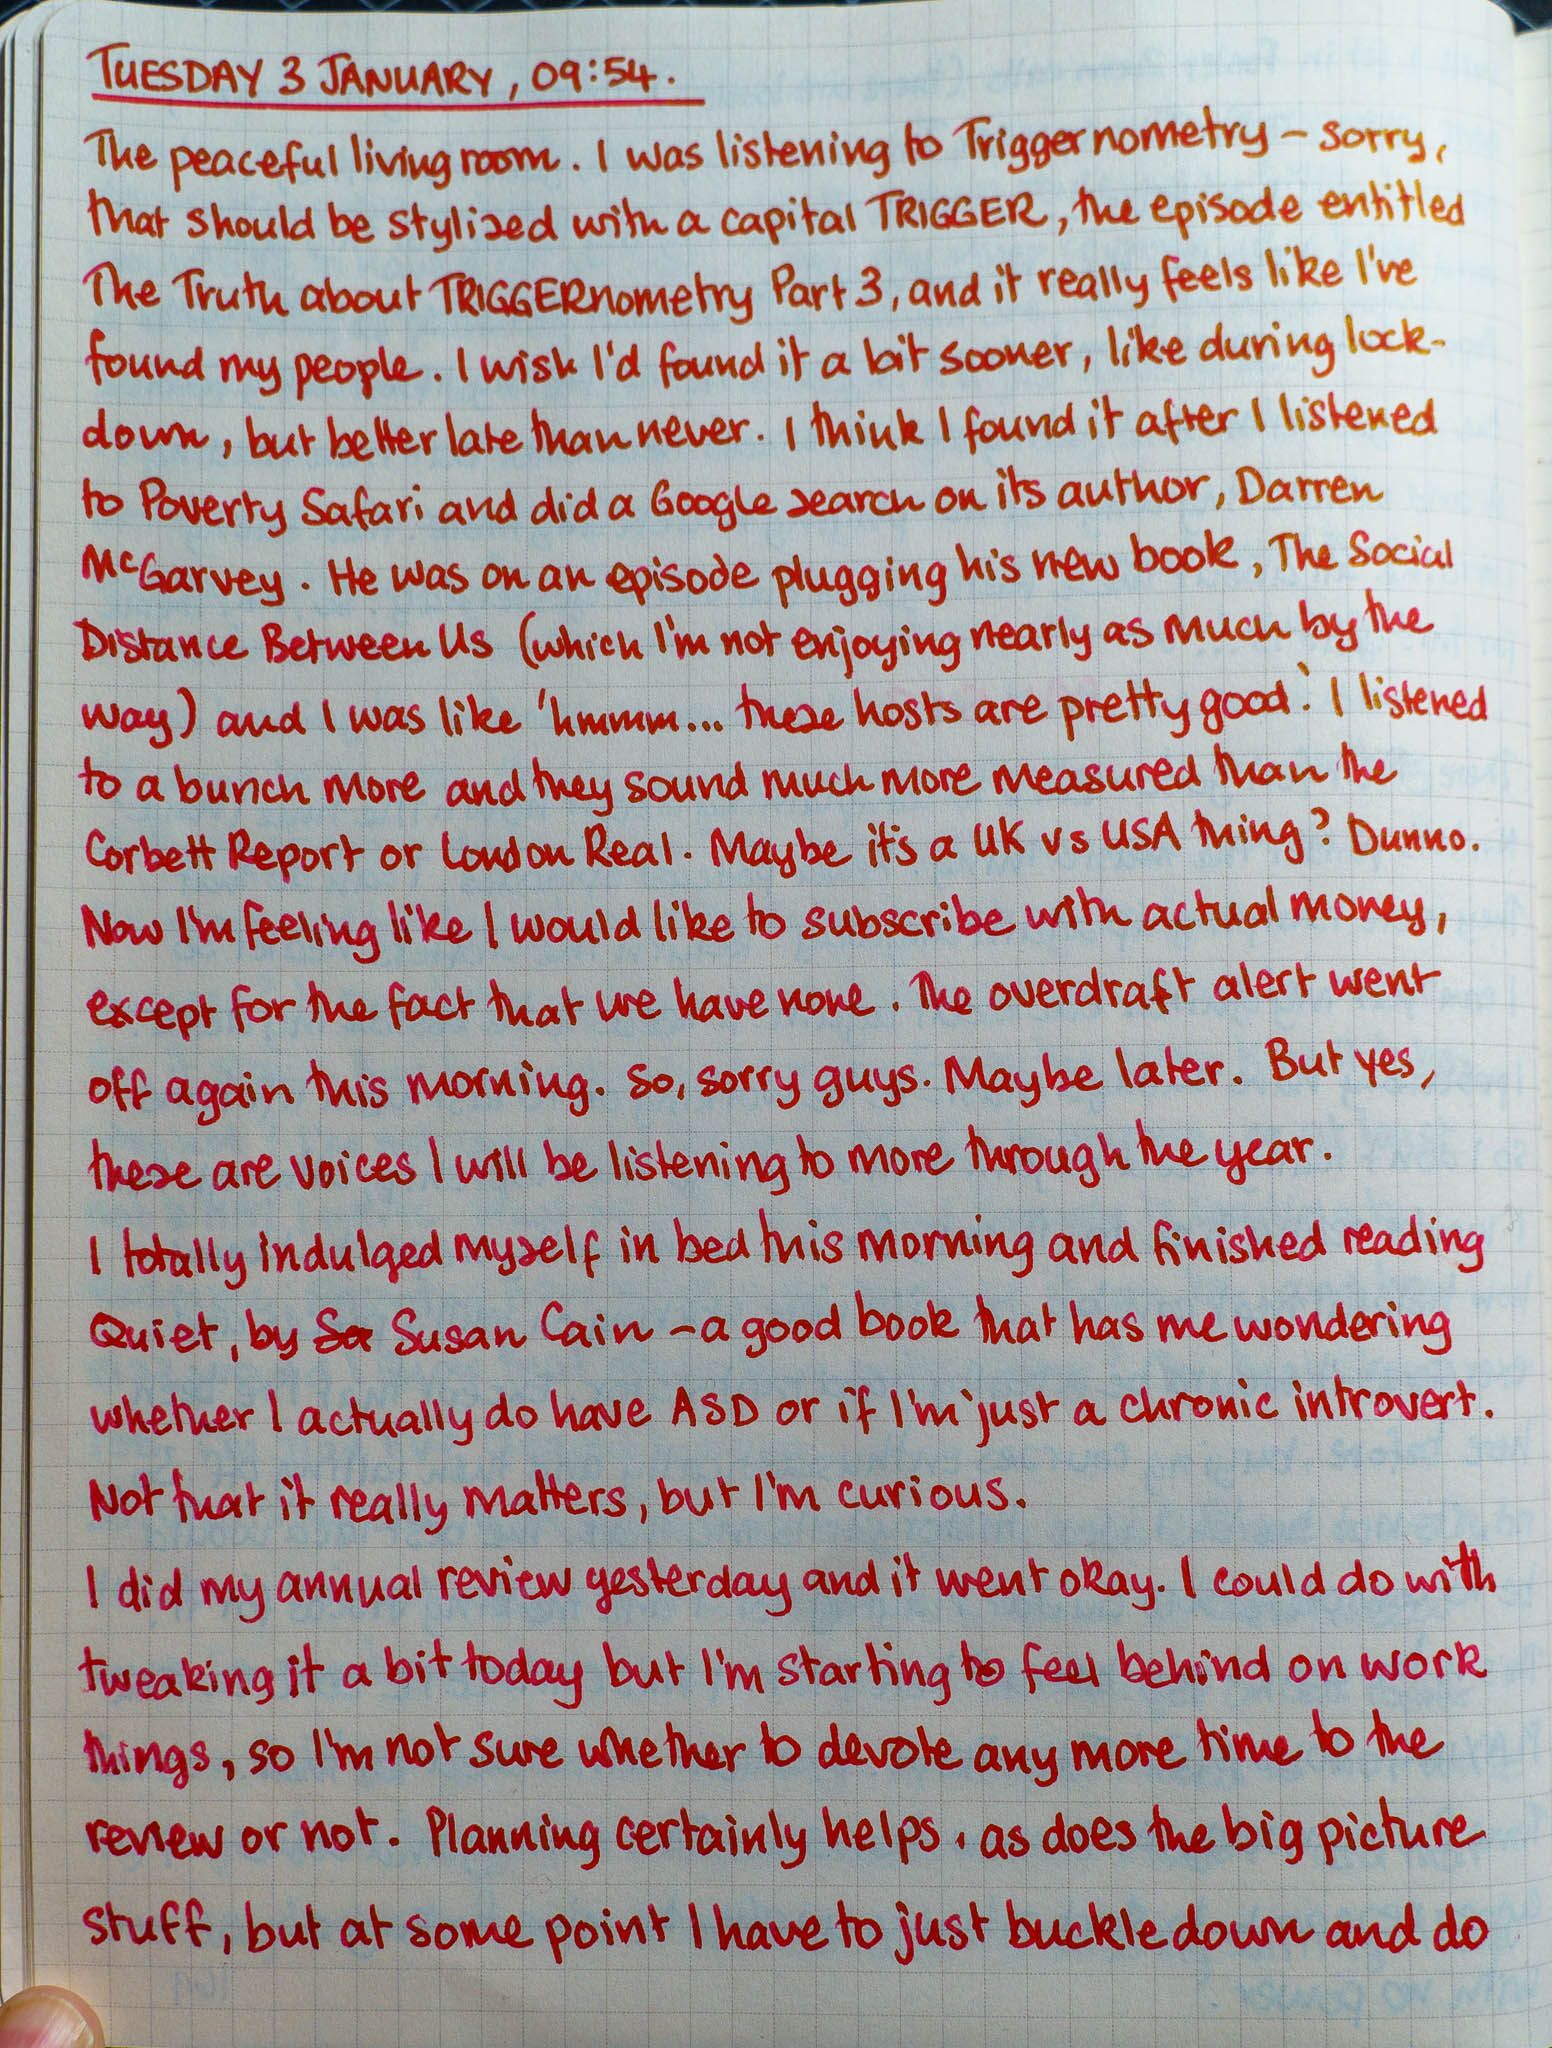 TUESDAY 3 JANUARY, 09:54.
The peaceful living room. I was listening to Triggernometry – sorry,
that should be stylized with a capital TRIGGER, the episode entitled
The Truth about TRIGGERnometry Part 3, and it really feels like I've
found my people. I wish I'd found it a bit sooner, like during lock-
down, but better late than never. I think I found it after I listened
to Poverty Safari and did a Google search on its author, Darren
McGarvey. He was on an episode plugging his new book, The Social
Distance Between Us (which I'm not enjoying nearly as much by the
way) and I was like 'hmmm... these hosts are pretty good.' I listened
to a bunch more and they sound much more measured than the
Corbett Report or London Real. Maybe it's a UK vs USA thing? Dunno.
Now I'm feeling like I would like to subscribe with actual money,
except for the fact that we have none. The overdraft alert went
off again this morning. So, sorry guys. Maybe later. But yes,
these are voices I will be listening to more through the year.
I totally indulged myself in bed this morning and finished reading
Quiet, by Sa Susan Cain – a good book that has me wondering
whether I actually do have ASD or if I'm just a chronic introvert.
Not that it really matters, but I'm curious.
I did my annual review yesterday and it went okay. I could do with
tweaking it a bit today but I'm starting to feel behind on work
things, so I'm not sure whether to devote any more time to the
review or not. Planning certainly helps, as does the big picture
stuff, but at some point I have to just buckle down and do